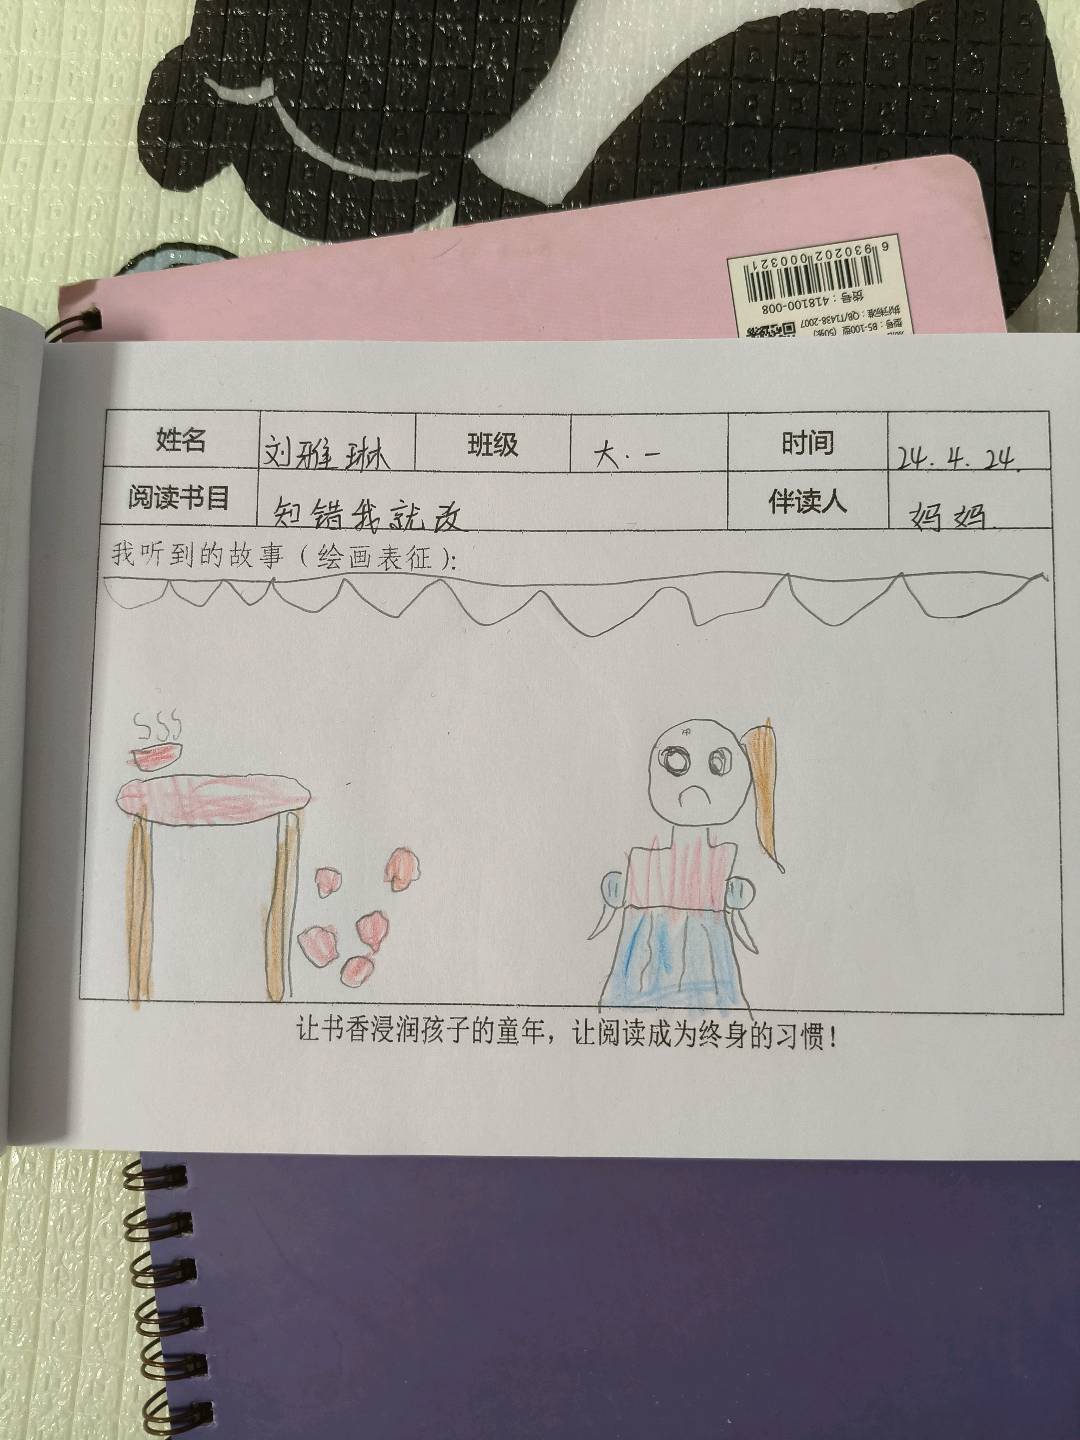 6930202000321
货号：418100-008
执行标准：QB/T1438-2007
型号：B5-100型（50张）
姓名 刘雅琳 班级 大·一 时间 24.4.24.
阅读书目 知错我就改 伴读人 妈妈
我听到的故事（绘画表征）：
让书香浸润孩子的童年，让阅读成为终身的习惯！